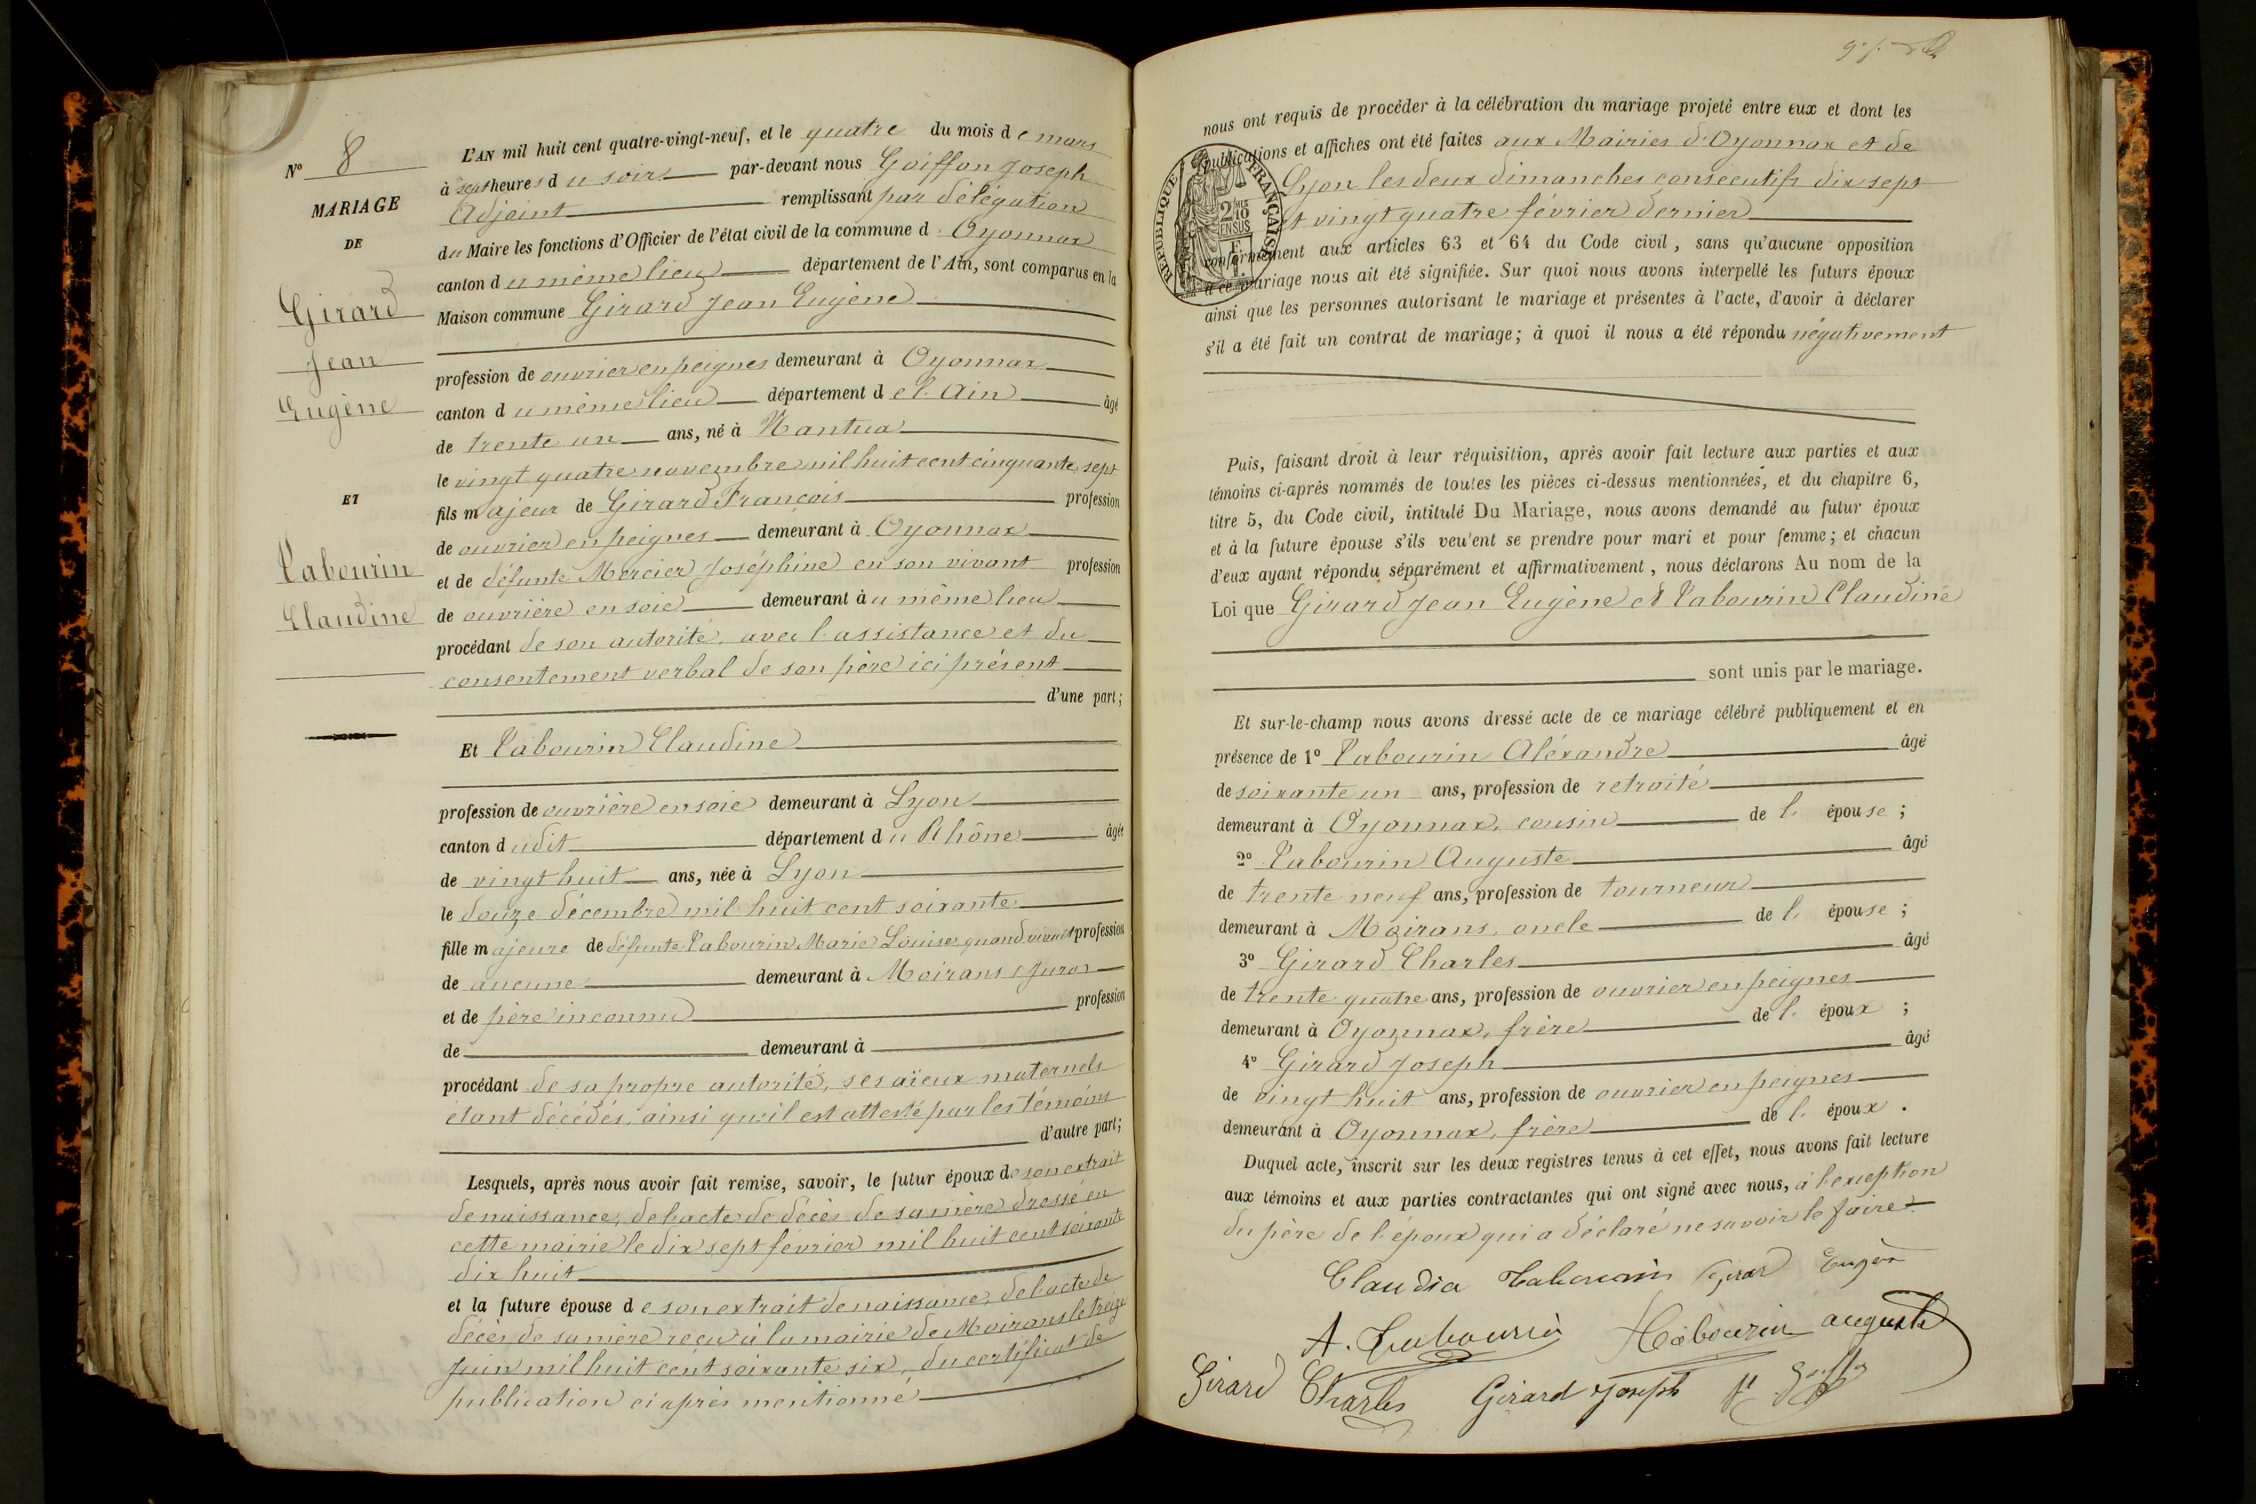 N° 8
MARIAGE
DE
Girard
Jean
Eugène
ET
Tabourin
Claudine
L'AN mil huit cent quatre-vingt-neuf, et le quatre du mois de mars
à sept heures du soir par-devant nous Goiffon Joseph
Adjoint remplissant par délégation
du Maire les fonctions d'Officier de l'état civil de la commune d'Oyonnax
canton du même lieu département de l'Ain, sont comparus en la
Maison commune Girard Jean Eugène
profession de ouvrier en peignes demeurant à Oyonnax
canton du même lieu département de l'Ain âgé
de trente un ans, né à Nantua
le vingt quatre novembre mil huit cent cinquante sept
fils majeur de Girard François profession
de ouvrier en peignes demeurant à Oyonnax
et de défunte Mercier Joséphine en son vivant profession
de ouvrière en soie demeurant au même lieu
procédant de son autorité, avec l'assistance et du
consentement verbal de son père ici présent
d'une part;
Et Tabourin Claudine
profession de ouvrière en soie demeurant à Lyon
canton dudit département du Rhône âgée
de vingt huit ans, née à Lyon
le douze décembre mil huit cent soixante
fille majeure de défunte Tabourin Marie Louise, quand vivait profession
de aucune demeurant à Moirans (Jura)
et de père inconnu profession
de demeurant à
procédant de sa propre autorité, ses aïeux maternels
étant décédés, ainsi qu'il est attesté par les témoins
d'autre part;
Lesquels, après nous avoir fait remise, savoir, le futur époux de son extrait
de naissance, de l'acte de décès de sa mère dressé en
cette mairie le dix sept février mil huit cent soixante
dix huit
et la future épouse de son extrait de naissance, de l'acte de
décès de sa mère reçu à la mairie de Moirans le treize
Juin mil huit cent soixante six, du certificat de
publication ci après mentionné
nous ont requis de procéder à la célébration du mariage projeté entre eux et dont les
publications et affiches ont été faites aux Mairies d'Oyonnax et de
Lyon les deux dimanches consécutifs dix sept
et vingt quatre février dernier
RÉPUBLIQUE FRANÇAISE
2/10
EN SUS
conformément aux articles 63 et 64 du Code civil, sans qu'aucune opposition
à ce mariage nous ait été signifiée. Sur quoi nous avons interpellé les futurs époux
ainsi que les personnes autorisant le mariage et présentes à l'acte, d'avoir à déclarer
s'il a été fait un contrat de mariage; à quoi il nous a été répondu négativement
Puis, faisant droit à leur réquisition, après avoir fait lecture aux parties et aux
témoins ci-après nommés de toutes les pièces ci-dessus mentionnées, et du chapitre 6,
titre 5, du Code civil, intitulé Du Mariage, nous avons demandé au futur époux
et à la future épouse s'ils veulent se prendre pour mari et pour femme; et chacun
d'eux ayant répondu séparément et affirmativement, nous déclarons Au nom de la
Loi que Girard Jean Eugène et Tabourin Claudine
sont unis par le mariage.
Et sur-le-champ nous avons dressé acte de ce mariage célébré publiquement et en
présence de 1° Tabourin Aléxandre âgé
de soixante un ans, profession de retraité
demeurant à Oyonnax, cousin de l'épouse;
2° Tabourin Auguste âgé
de trente neuf ans, profession de tourneur
demeurant à Moirans, oncle de l'épouse;
3° Girard Charles âgé
de trente quatre ans, profession de ouvrier en peignes
demeurant à Oyonnax, frère de l'époux;
4° Girard Joseph âgé
de vingt huit ans, profession de ouvrier en peignes
demeurant à Oyonnax, frère de l'époux.
Duquel acte, inscrit sur les deux registres tenus à cet effet, nous avons fait lecture
aux témoins et aux parties contractantes qui ont signé avec nous, à l'exception
du père de l'époux qui a déclaré ne savoir le faire.
Claudia Tabourin Girard Eugène
A. Tabourin Tabourin auguste
Girard Charles Girard Joseph